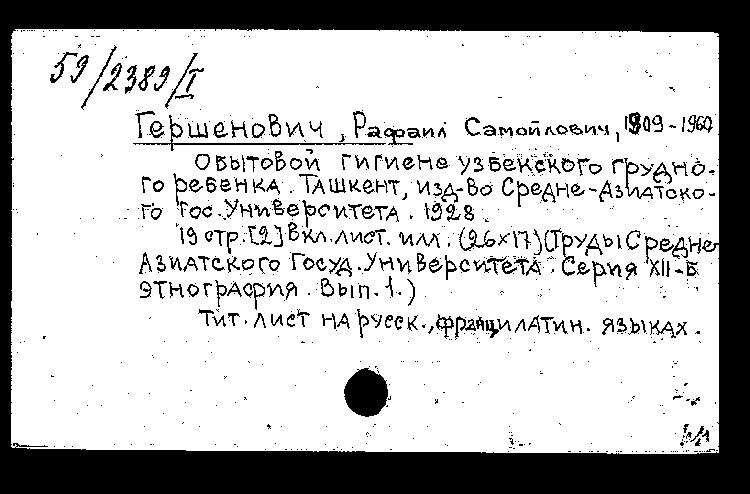 59/2389/I
Гершенович, Рафаил Самойлович, 1909-1960
О бытовой гигиене узбекского грудно-
го ребенка. Ташкент, изд-во Средне-Азиатско-
го Гос. Университета. 1928.
19 стр. [2] вкл. лист. илл. (26×17) (Труды Средне-
Азиатского Госуд. Университета. Серия XII-Б
этнография. Вып. 1.)
Тит. лист на русск., франц. и латин. языках.